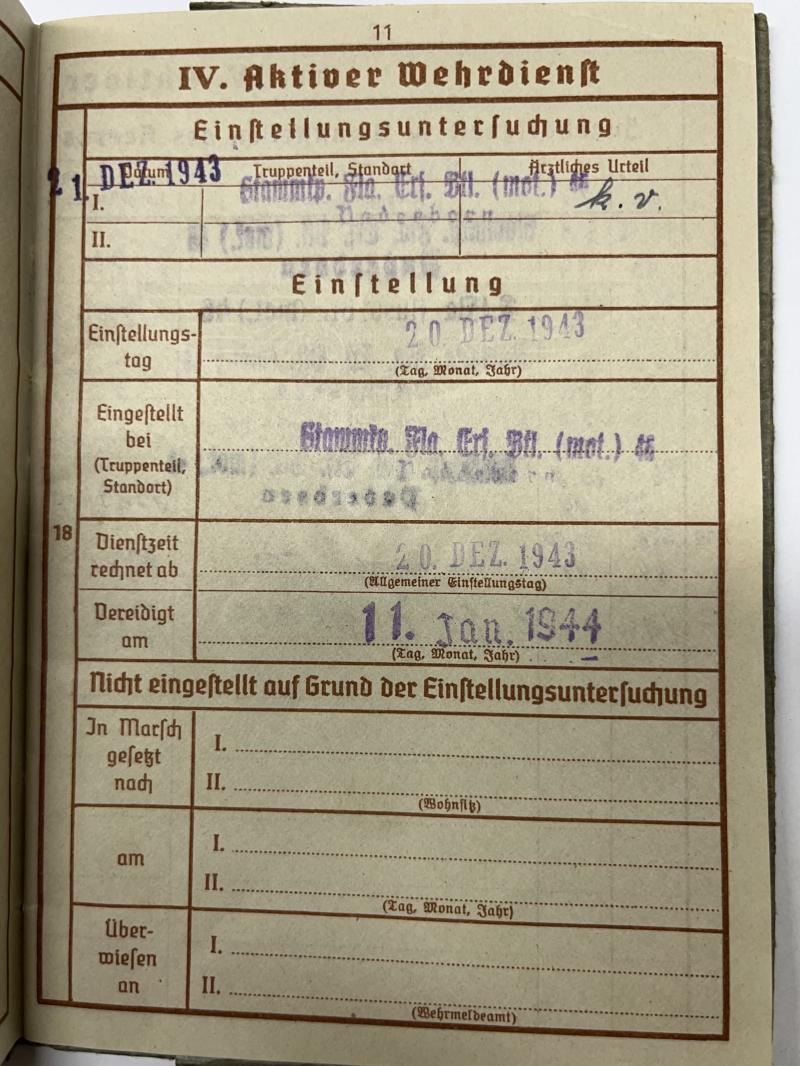 11
IV. Aktiver Wehrdienst
Einstellungsuntersuchung
Datum Truppenteil, Standort Ärztliches Urteil
21. DEZ. 1943
I. Stammkp. Fla. Ers. Btl. (mot.) 46 k. v.
II.
Einstellung
Einstellungs-
tag
20. DEZ. 1943
(Tag, Monat, Jahr)
Eingestellt
bei
(Truppenteil,
Standort)
Stammkp. Fla. Ers. Btl. (mot.) 46
18
Dienstzeit
rechnet ab
20. DEZ. 1943
(Allgemeiner Einstellungstag)
Vereidigt
am
11. Jan. 1944
(Tag, Monat, Jahr)
Nicht eingestellt auf Grund der Einstellungsuntersuchung
In Marsch
gesetzt
nach
I.
II.
(Wohnsitz)
am
I.
II.
(Tag, Monat, Jahr)
Über-
wiesen
an
I.
II.
(Wehrmeldeamt)